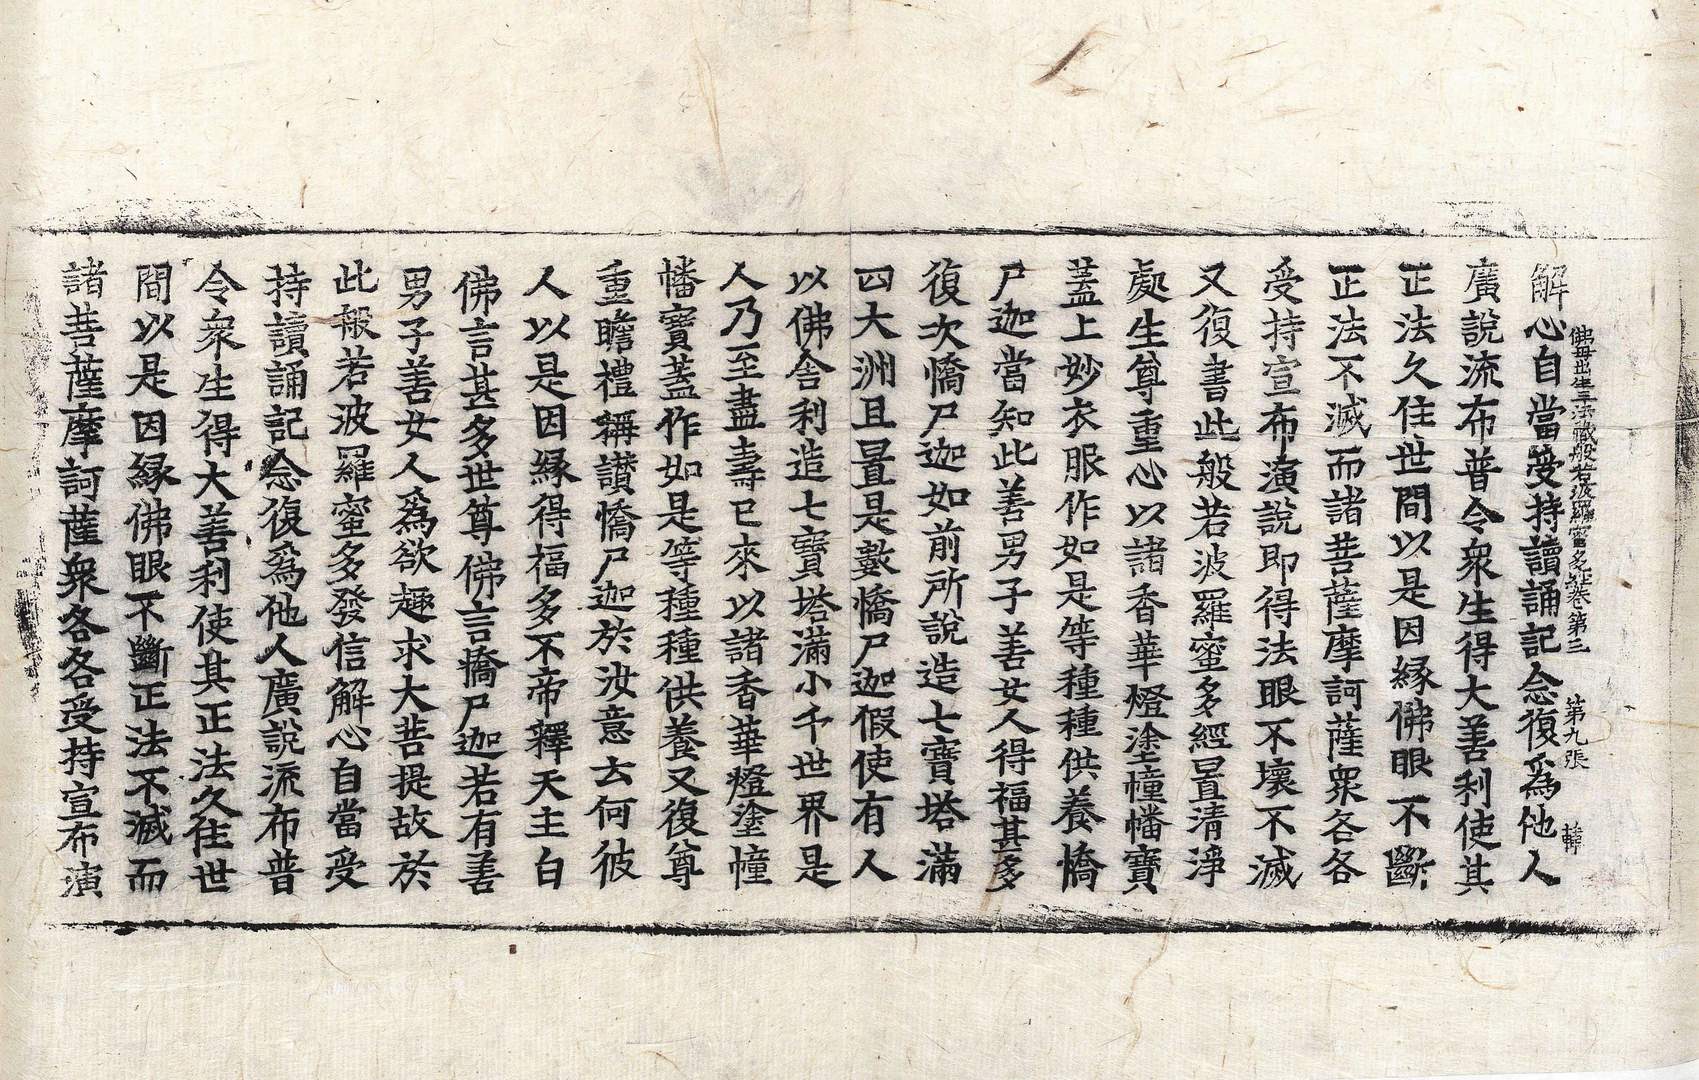 佛母出生三法藏般若波羅蜜多經卷第三 第九張 韓
解心自當受持讀誦記念復爲他人
廣說流布普令衆生得大善利使其
正法久住世間以是因緣佛眼不斷
正法不滅而諸菩薩摩訶薩衆各各
受持宣布演說即得法眼不壞不滅
又復書此般若波羅蜜多經置清淨
處生尊重心以諸香華燈塗幢幡寶
蓋上妙衣服作如是等種種供養憍
尸迦當知此善男子善女人得福甚多
復次憍尸迦如前所說造七寶塔滿
四大洲且置是數憍尸迦假使有人
以佛舍利造七寶塔滿小千世界是
人乃至盡壽已來以諸香華燈塗幢
幡寶蓋作如是等種種供養又復尊
重瞻禮稱讃憍尸迦於汝意云何彼
人以是因緣得福多不帝釋天主白
佛言甚多世尊佛言憍尸迦若有善
男子善女人爲欲趣求大菩提故於
此般若波羅蜜多發信解心自當受
持讀誦記念復爲他人廣說流布普
令衆生得大善利使其正法久住世
間以是因緣佛眼不斷正法不滅而
諸菩薩摩訶薩衆各各受持宣布演